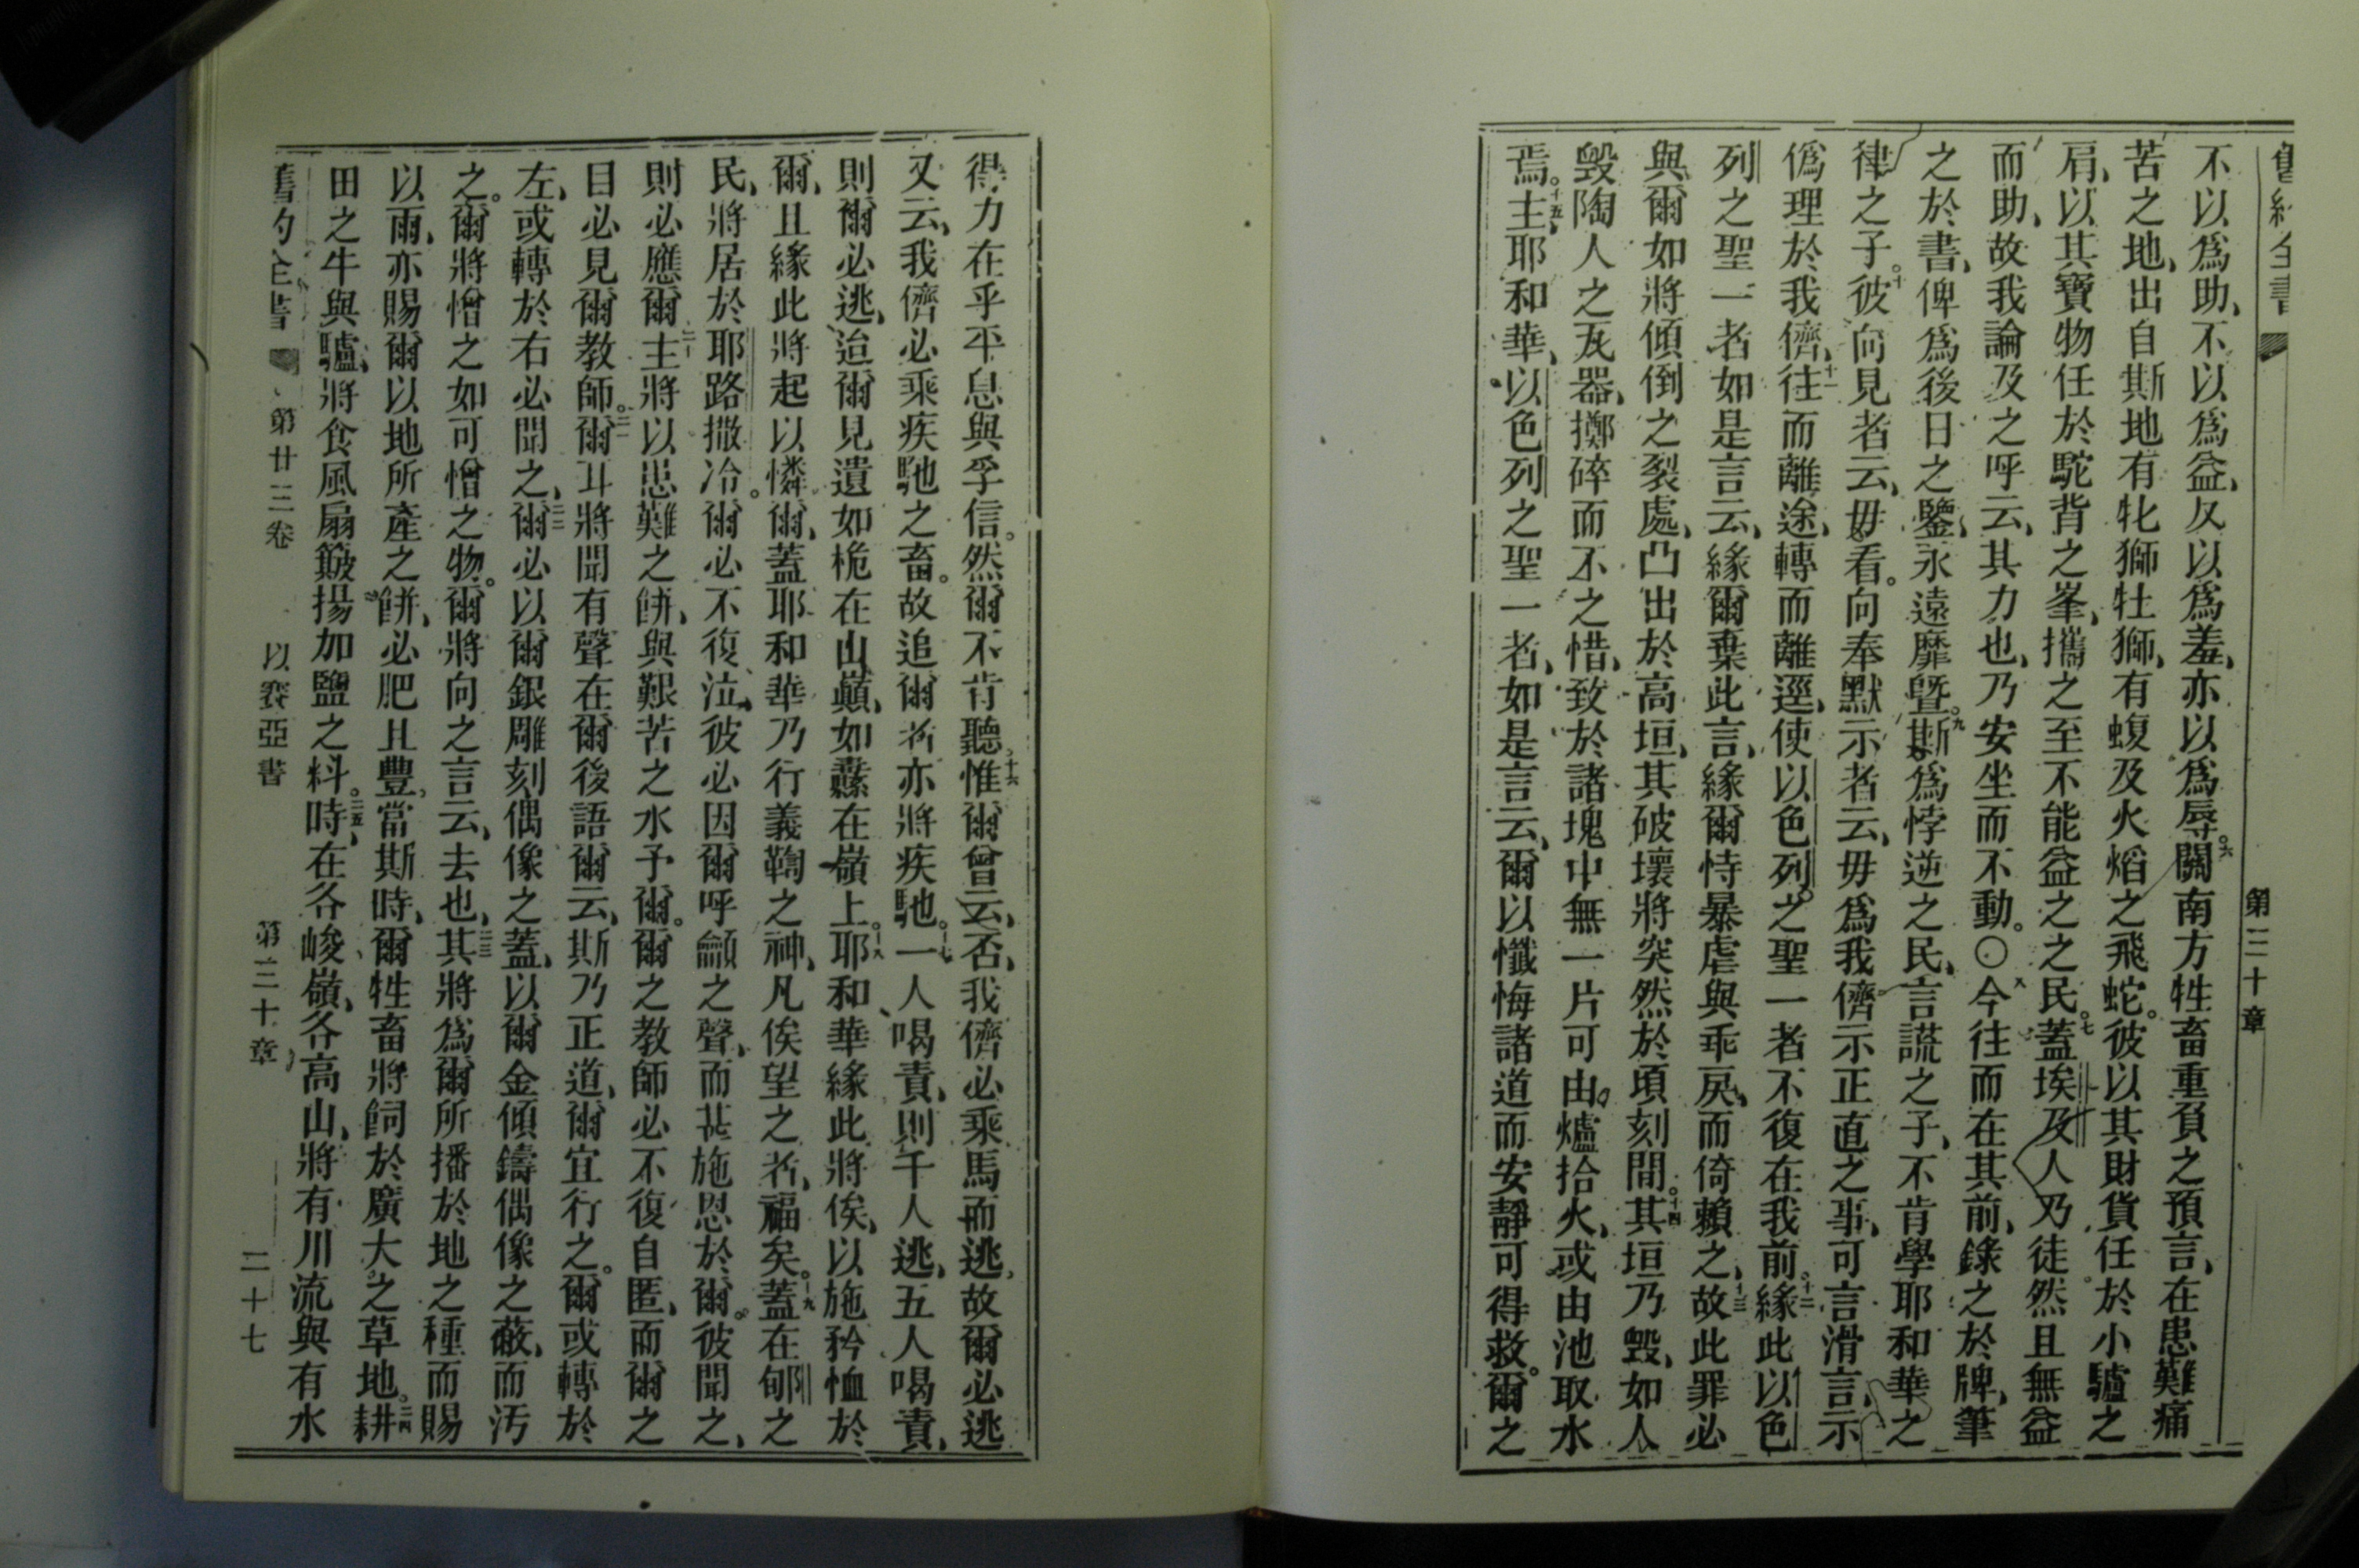 舊約全書
第三十章
不以爲助、不以爲益、反以爲羞、亦以爲辱。六關南方牲畜重負之預言、在患難痛
苦之地、出自斯地有牝獅牡獅、有蝮及火焰之飛蛇。彼以其財貨任於小驢之
肩、以其寶物任於駝背之峯、攜之至不能益之之民。七蓋埃及人乃徒然且無益
而助、故我論及之呼云、其力也、乃安坐而不動。〇八今往而在其前、錄之於牌、筆
之於書、俾爲後日之鑒、永遠靡曁。九斯爲悖逆之民、言謊之子、不肯學耶和華之
律之子。十彼向見者云、毋看。向奉默示者云、毋爲我儕示正直之事、可言滑言、示
僞理於我儕、十一往而離途、轉而離逕、使以色列之聖一者不復在我前。十二緣此以色
列之聖一者如是言云、緣爾棄此言、緣爾恃暴虐與乖戾、而倚賴之、十三故此罪必
與爾如將傾倒之裂處、凸出於高垣、其破壞將突然於頃刻間。十四其垣乃毀、如人
毀陶人之瓦器、擲碎而不之惜、致於諸塊中無一片可由爐拾火、或由池取水
焉。十五主耶和華、以色列之聖一者、如是言云、爾以懺悔諸道而安靜可得救。爾之
得力在乎平息與孚信。然爾不肯聽。十六惟爾曾云、否、我儕必乘馬而逃、故爾必逃
又云、我儕必乘疾馳之畜。故追爾者亦將疾馳。十七一人喝責、則千人逃、五人喝責、
則爾必逃、迨爾見遺如桅在山巔、如纛在嶺上。十八耶和華緣此將俟、以施矜恤於
爾、且緣此將起以憐爾、蓋耶和華乃行義鞫之神、凡俟望之者、福矣。十九蓋在郇之
民、將居於耶路撒冷。爾必不復泣、彼必因爾呼籲之聲、而甚施恩於爾。彼聞之、
則必應爾、二十主將以患難之餅、與艱苦之水予爾。爾之教師必不復自匿、而爾之
目必見爾教師。二一爾耳將聞有聲在爾後語爾云、斯乃正道、爾宜行之。爾或轉於
左、或轉於右必聞之、二二爾必以爾銀雕刻偶像之蓋、以爾金傾鑄偶像之蔽、而汚
之。爾將憎之如可憎之物。爾將向之言云、去也、二三其將爲爾所播於地之種而賜
以雨、亦賜爾以地所產之餅、必肥且豐。當斯時、爾牲畜將飼於廣大之草地。二四耕
田之牛與驢、將食風扇簸揚加鹽之料。二五時、在各峻嶺、各高山、將有川流與有水
舊約全書 第廿三卷 以賽亞書 第三十章 二十七